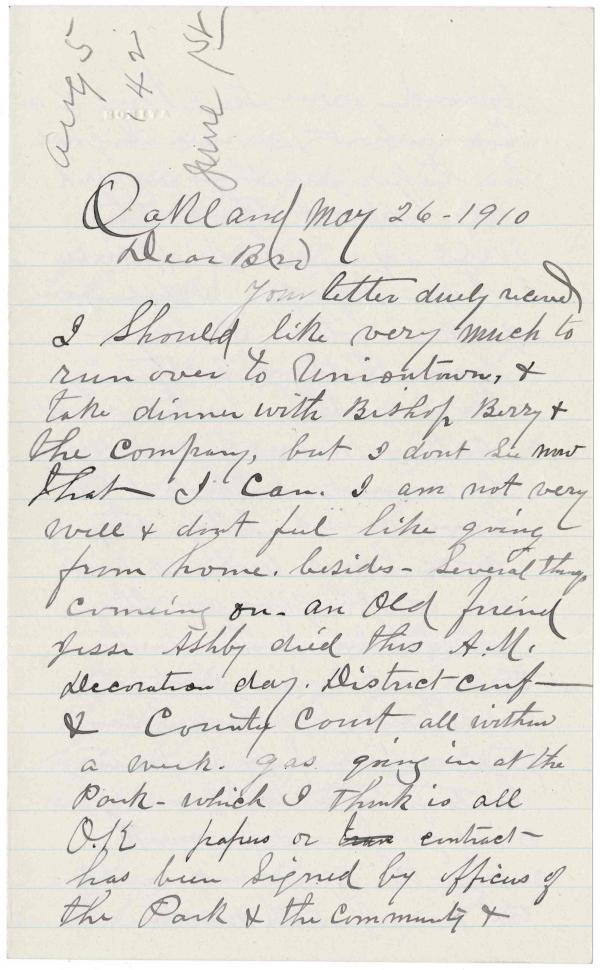 Aug 5
242
June 1st
Oakland May 26-1910
Dear Bro
Your letter duely recieved
I Should like very much to
run over to Uniontown, &
take dinner with Bishop Berry &
the company, but I dont See now
that I can. I am not very
well & dont feel like going
from home. besides - Several things
comeing on - an Old friend
Jesse Ashby died this A.M.
Decoration day. District conf-
& County Court all within
a week. gas going in at the
Park - which I think is all
O.K papers or contract
has been Signed by officers of
the Park & the community &